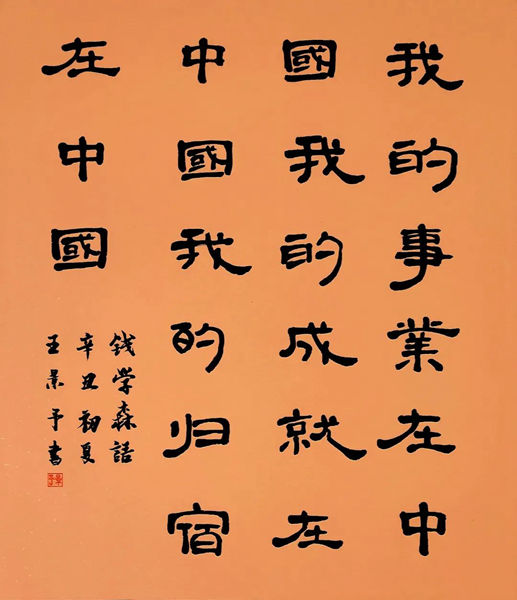 我的事業在中
國我的成就在
中國我的归宿
在中國
钱学森語
辛丑初夏
王景予書